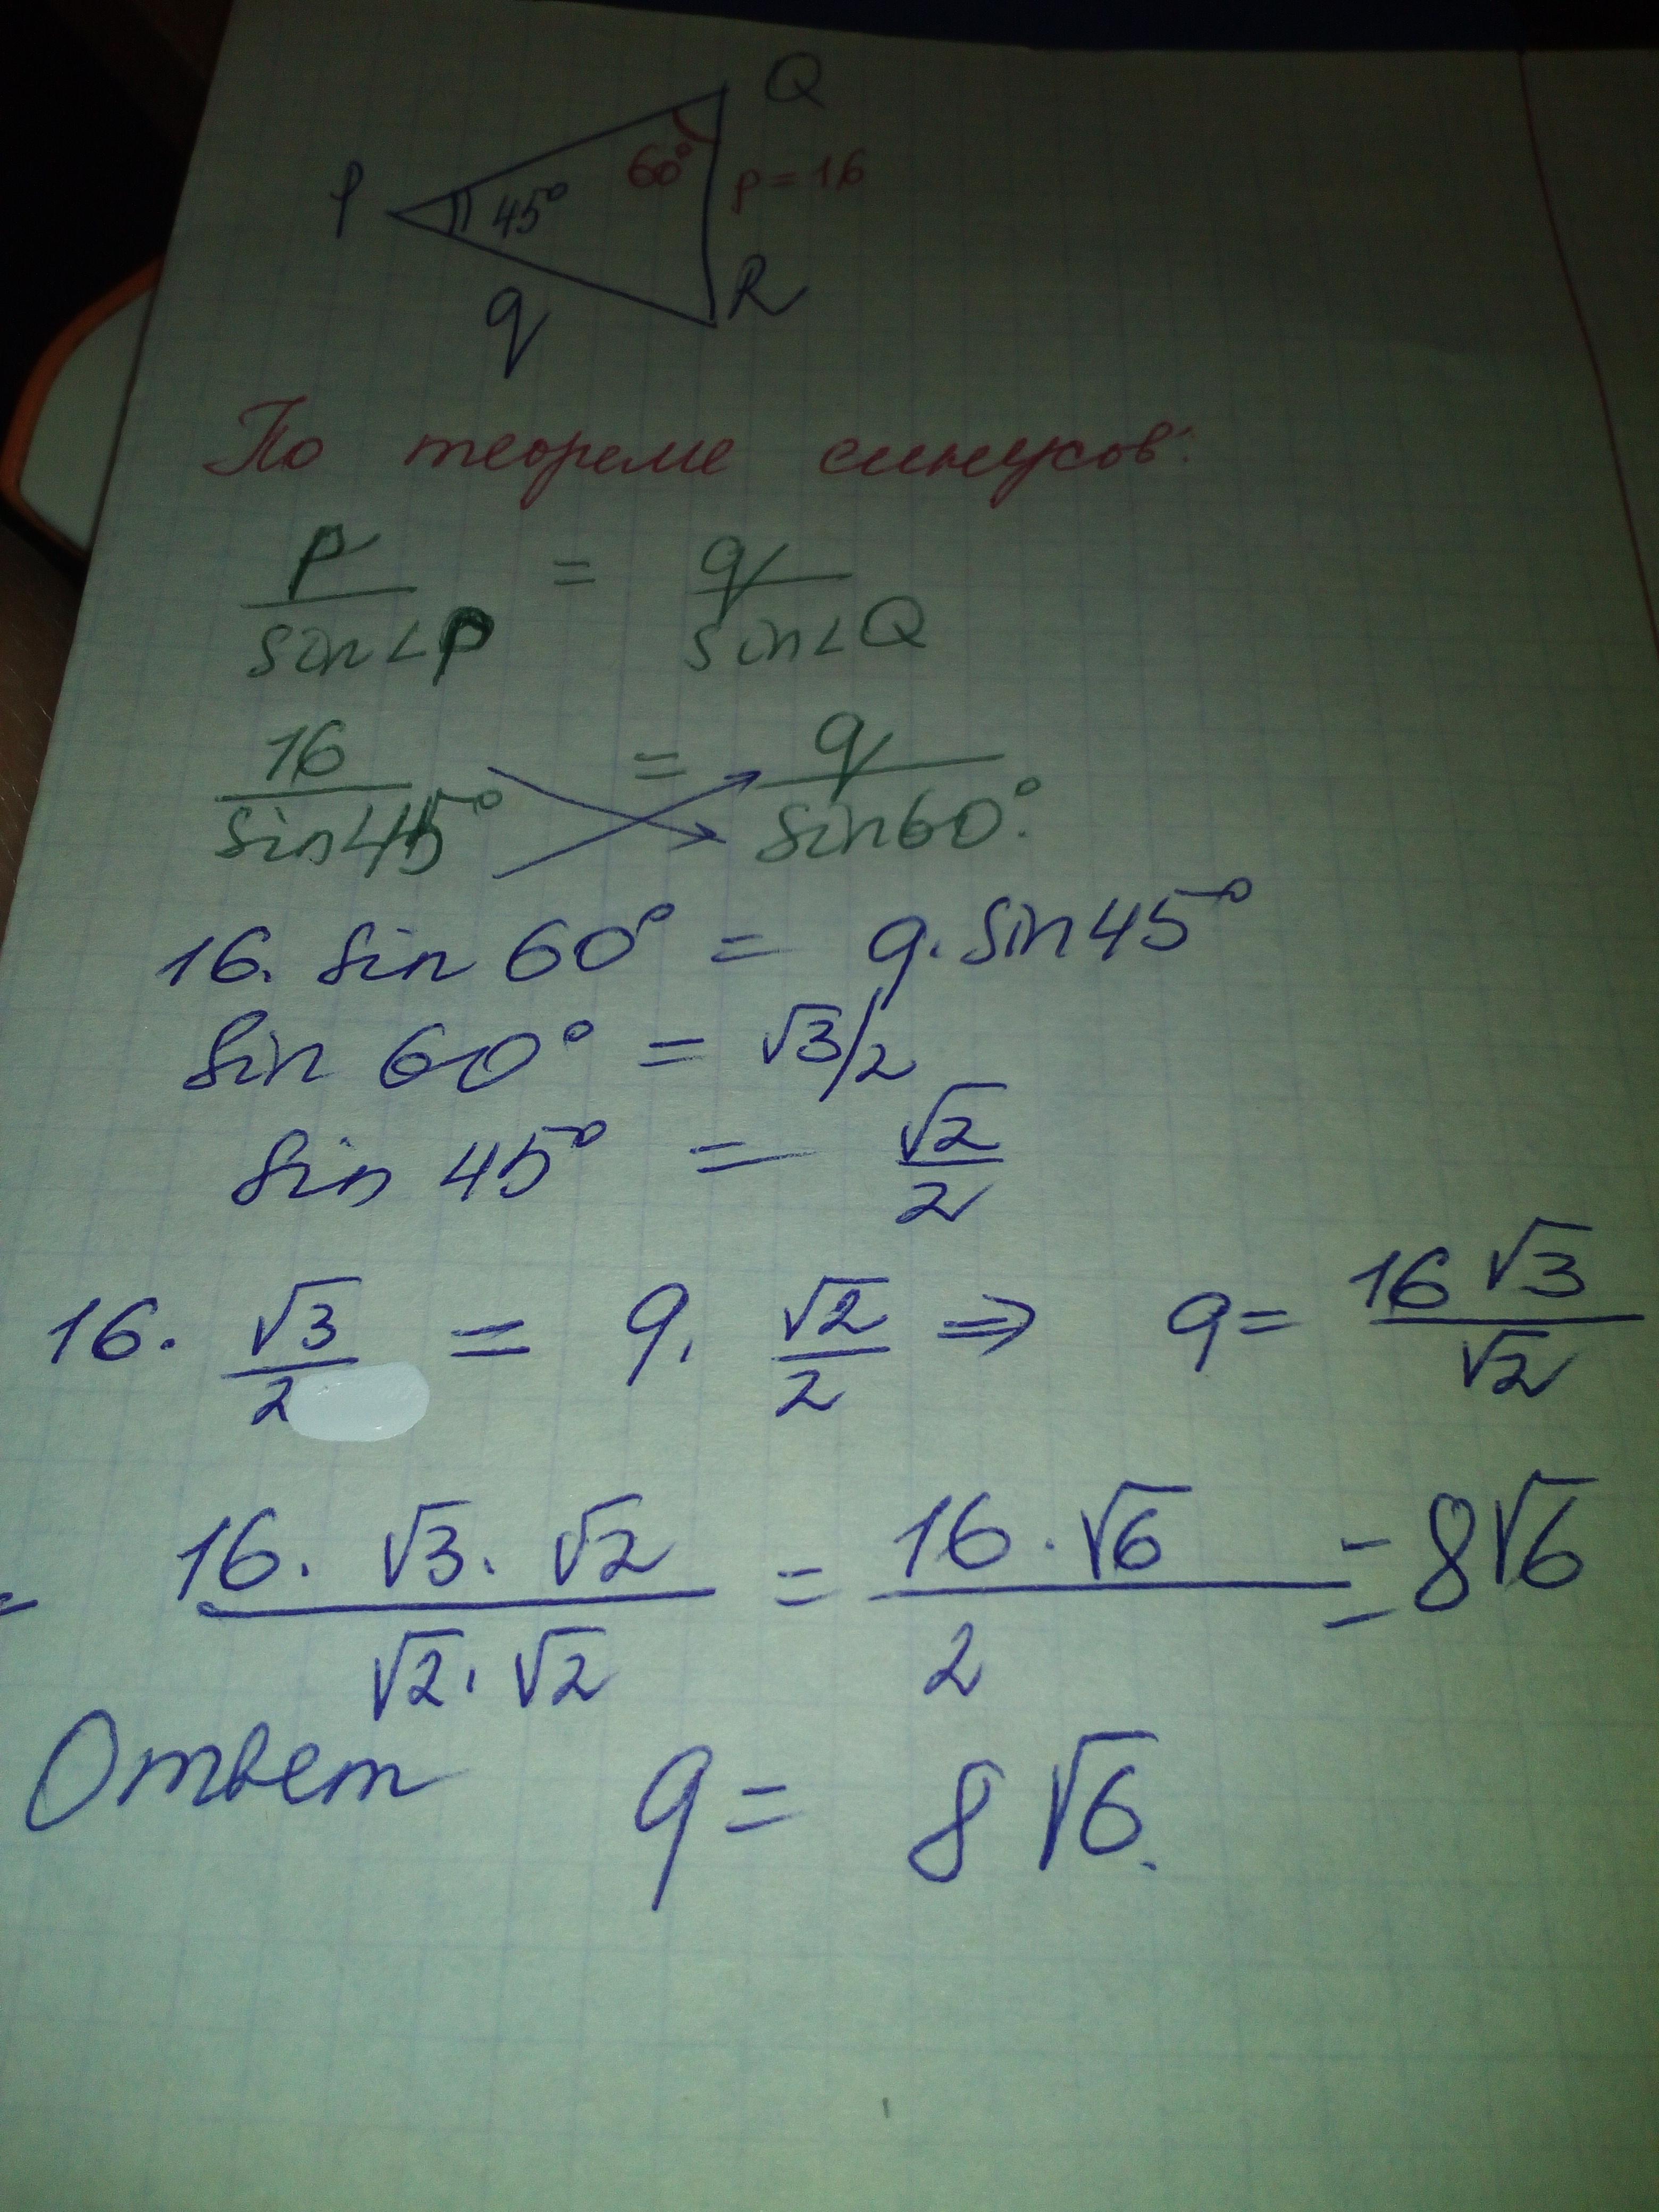 Q
60°
p = 16
P
45°
R
q
По теореме синусов:
p/sin∠P = q/sin∠Q
16/sin45° = q/sin60°
16 · sin 60° = q · sin45°
sin 60° = √3/2
sin 45° = √2/2
16 · √3/2 = q · √2/2 ⇒ q = 16√3/√2
= 16 · √3 · √2/√2 · √2 = 16 · √6/2 = 8√6
Ответ q = 8√6.